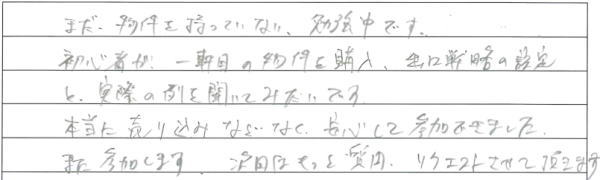 まだ、物件を持っていない、勉強中です。
初心者が、一軒目の物件を購入、出口戦略の設定
と、実際の例を聞いてみたいです
本当に売り込みなどなく、安心して参加できました。
また参加します 次回はもっと質問、リクエストさせて頂きます